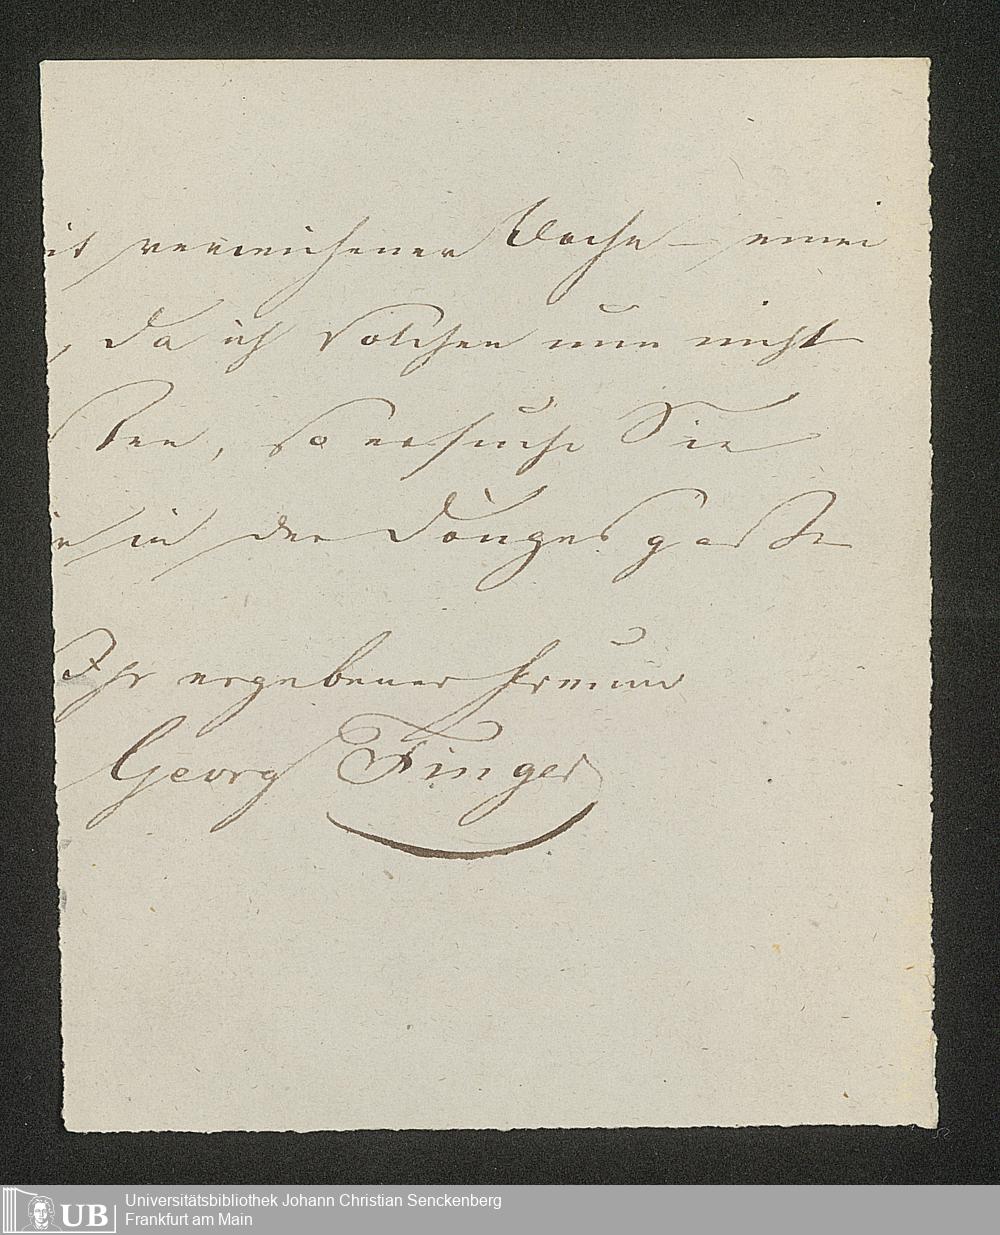 it verwichener Woche – einen
, da ich solchen nun nicht
, so ersuche Sie
in der Döngesgasse
Ihr ergebener Freund
Georg Finger
UB
Universitätsbibliothek Johann Christian Senckenberg
Frankfurt am Main